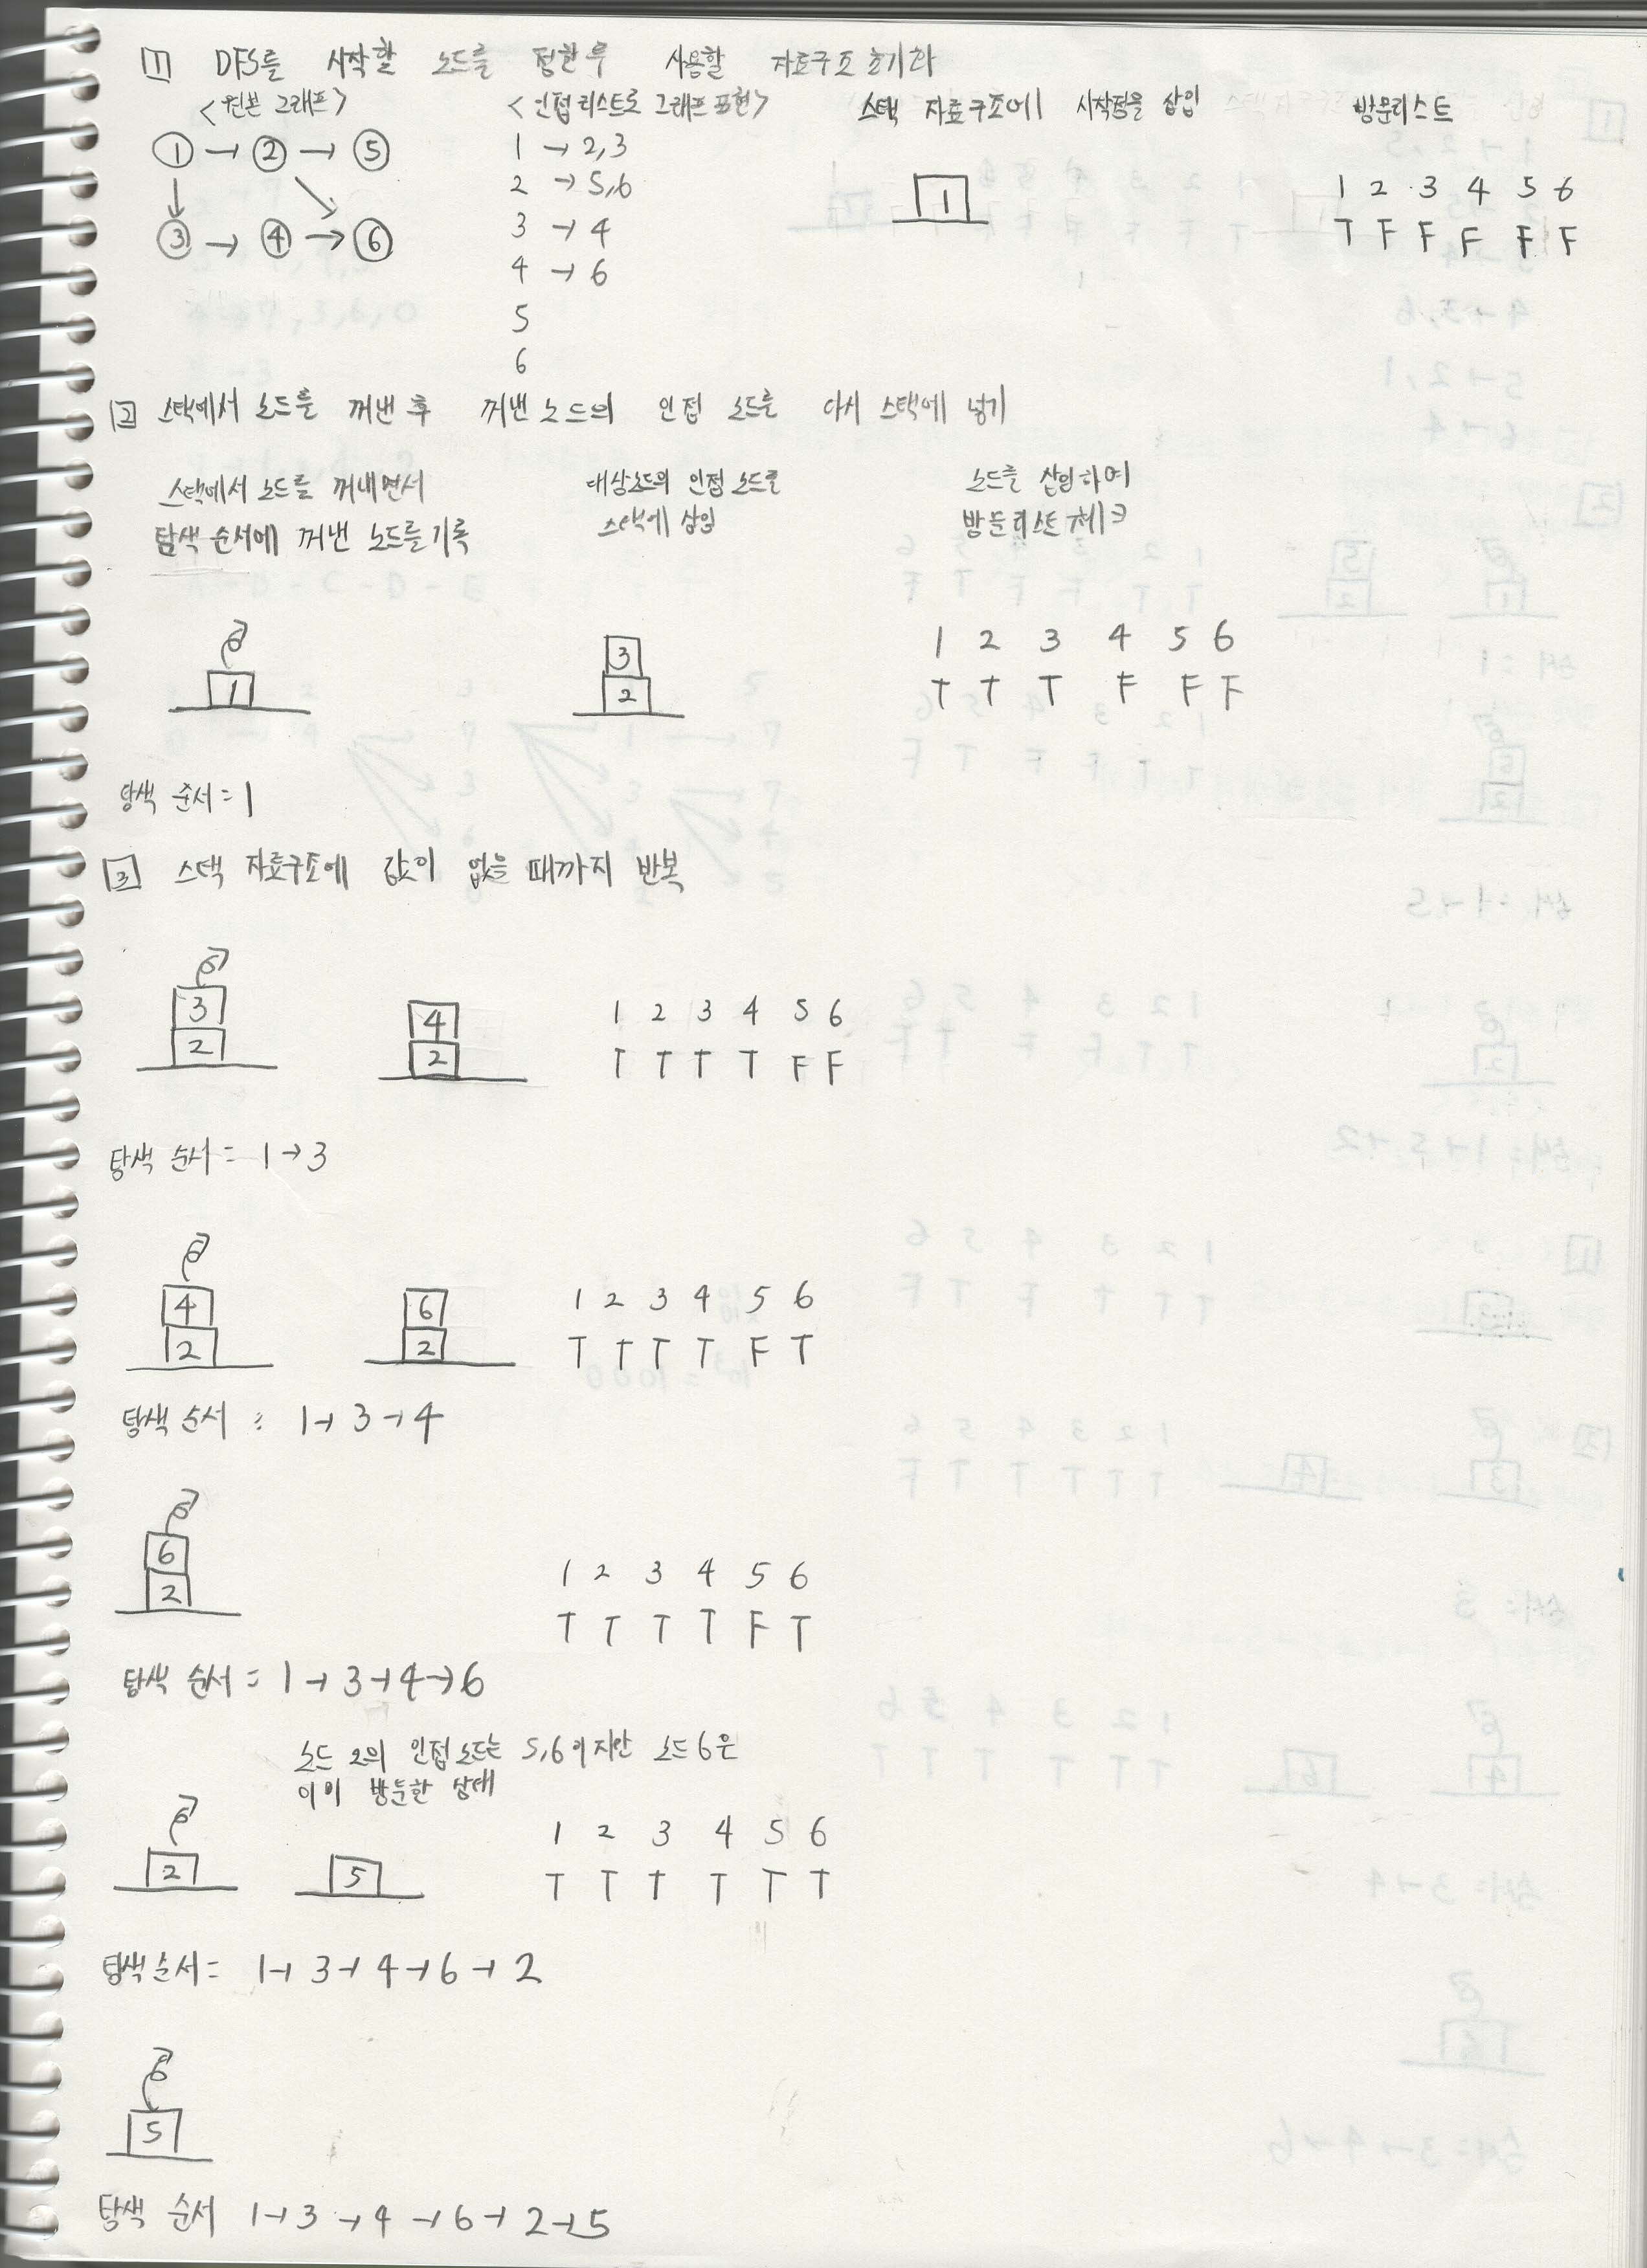 1 DFS를 시작할 노드를 정한 후 사용할 자료구조 초기화
<원본 그래프> <인접리스트로 그래프 표현> 스택 자료구조에 시작점을 삽입 방문리스트
1 → 2 → 5
3 → 4 → 6
1 → 2,3
2 → 5,6
3 → 4
4 → 6
5
6
1
1 2 3 4 5 6
T F F F F F
2 스택에서 노드를 꺼낸 후 꺼낸 노드의 인접 노드를 다시 스택에 넣기
스택에서 노드를 꺼내면서
탐색 순서에 꺼낸 노드를 기록
대상노드의 인접 노드를
스택에 삽입
노드를 삽입하여
방문리스트 체크
1
3
2
1 2 3 4 5 6
T T T F F F
탐색 순서 = 1
3 스택 자료구조에 값이 없을 때까지 반복
3
2
4
2
1 2 3 4 5 6
T T T T F F
탐색 순서 = 1 → 3
4
2
6
2
1 2 3 4 5 6
T T T T F T
탐색 순서 = 1 → 3 → 4
6
2
1 2 3 4 5 6
T T T T F T
탐색 순서 = 1 → 3 → 4 → 6
노드 2의 인접노드는 5,6이지만 노드 6은
이미 방문한 상태
2
5
1 2 3 4 5 6
T T T T T T
탐색 순서 = 1 → 3 → 4 → 6 → 2
5
탐색 순서 1 → 3 → 4 → 6 → 2 → 5